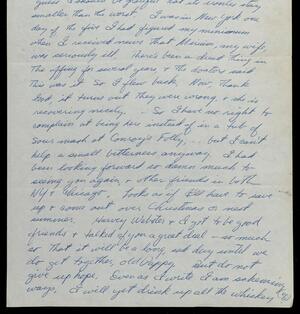 guess I should be grateful that its words stay
smaller than the worst. I was in New York one
day of the first I had figured my minimum
when I received news that Marian, my wife,
was seriously ill. there's been a dread thing in
the offing for several years & the doctor said
this was it. So I flew back. Now, thank
God, it turns out they were wrong, & she is
recovering nicely. - So I have no right to
complain at being here instead of in a tub of
sour mash at Conroy's Folly, ... but I can't
help a small bitterness anyway. I had
been looking forward so damn much to
seeing you again, & other friends in both
NY & Chicago. Looks as if I'll have to save
up & come out over Christmas or next
summer. Harvey Webster & I got to be good
friends & talked of you a great deal - so much
so that it will be a long, sad day until we
do get together, old Pappy. But do not
give up hope. Even as I write I am scheming
ways. I will yet drink up all the whiskey